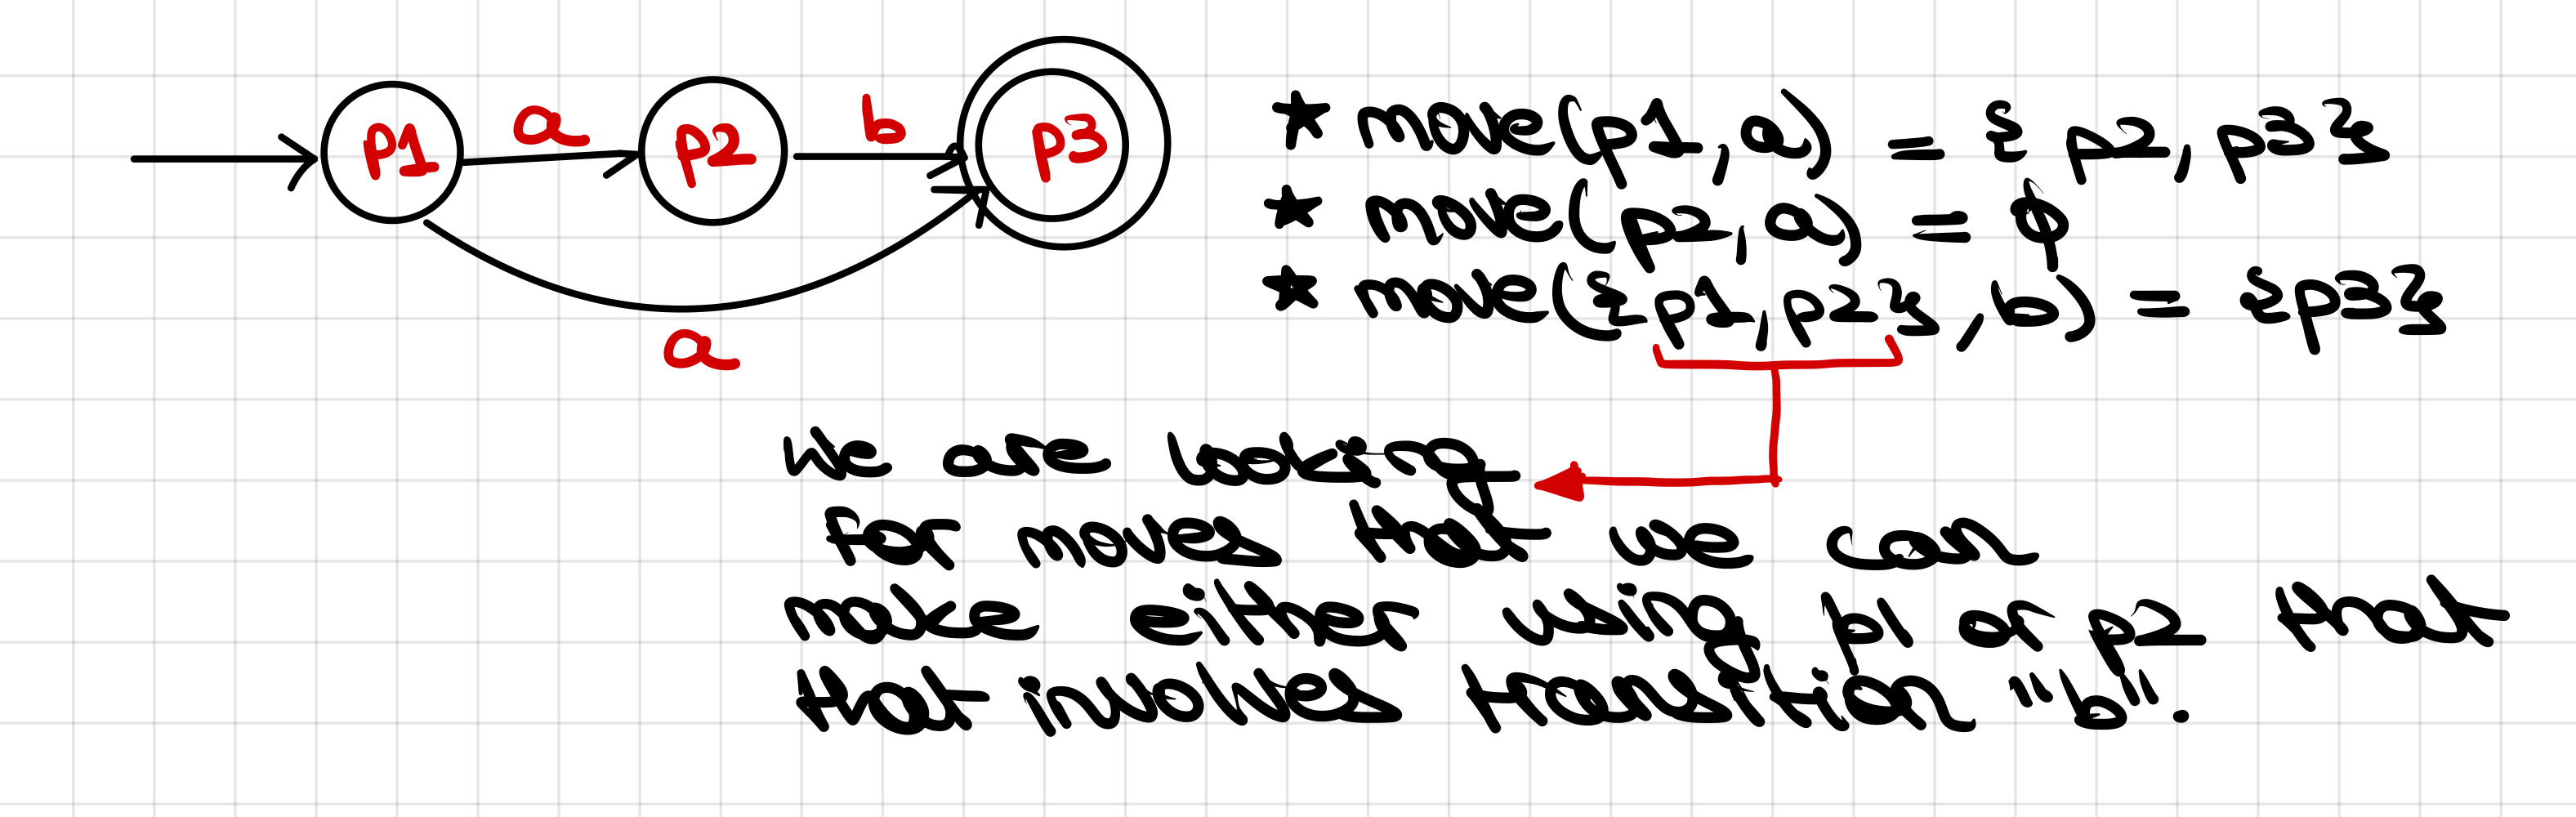 p1 a p2 b p3
a
* move(p1, a) = { p2, p3}
* move(p2, a) = ϕ
* move({p1, p2}, b) = {p3}
We are looking
for moves that we can
make either using p1 or p2 that
that involves transition "b".